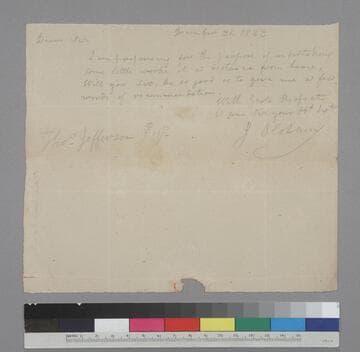 Dear Sir
I am preparing for the purpose of undertaking
some little works at a distance from home,
Will you Sir, be so good as to give me a few
words of recommendation.
With Great Respects
I am Sir your
Tho.s Jefferson Esqr.
J